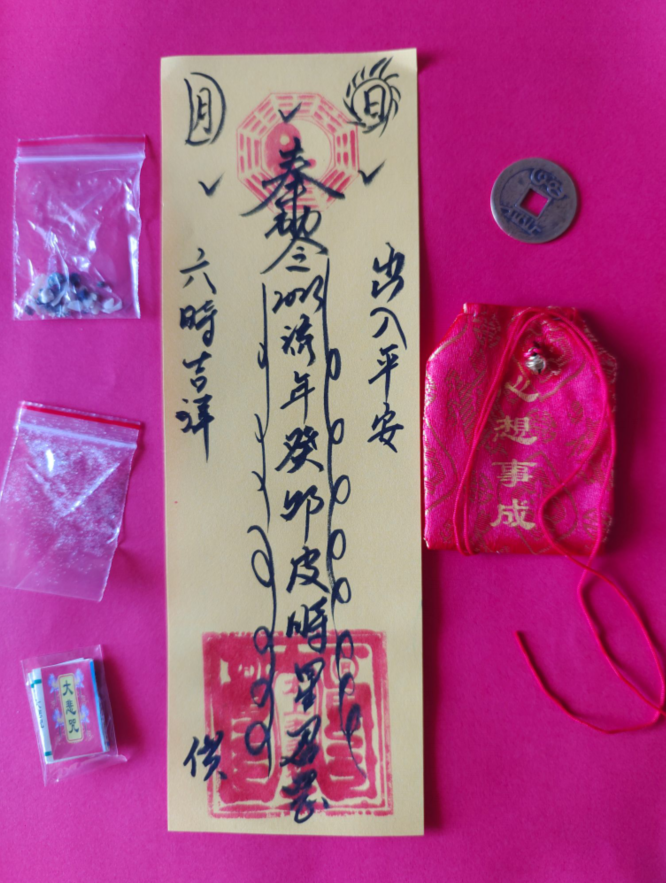 日
月
奉勅令2023流年癸卯皮時星君
出入平安
六時吉祥
供
想事成
大悲咒